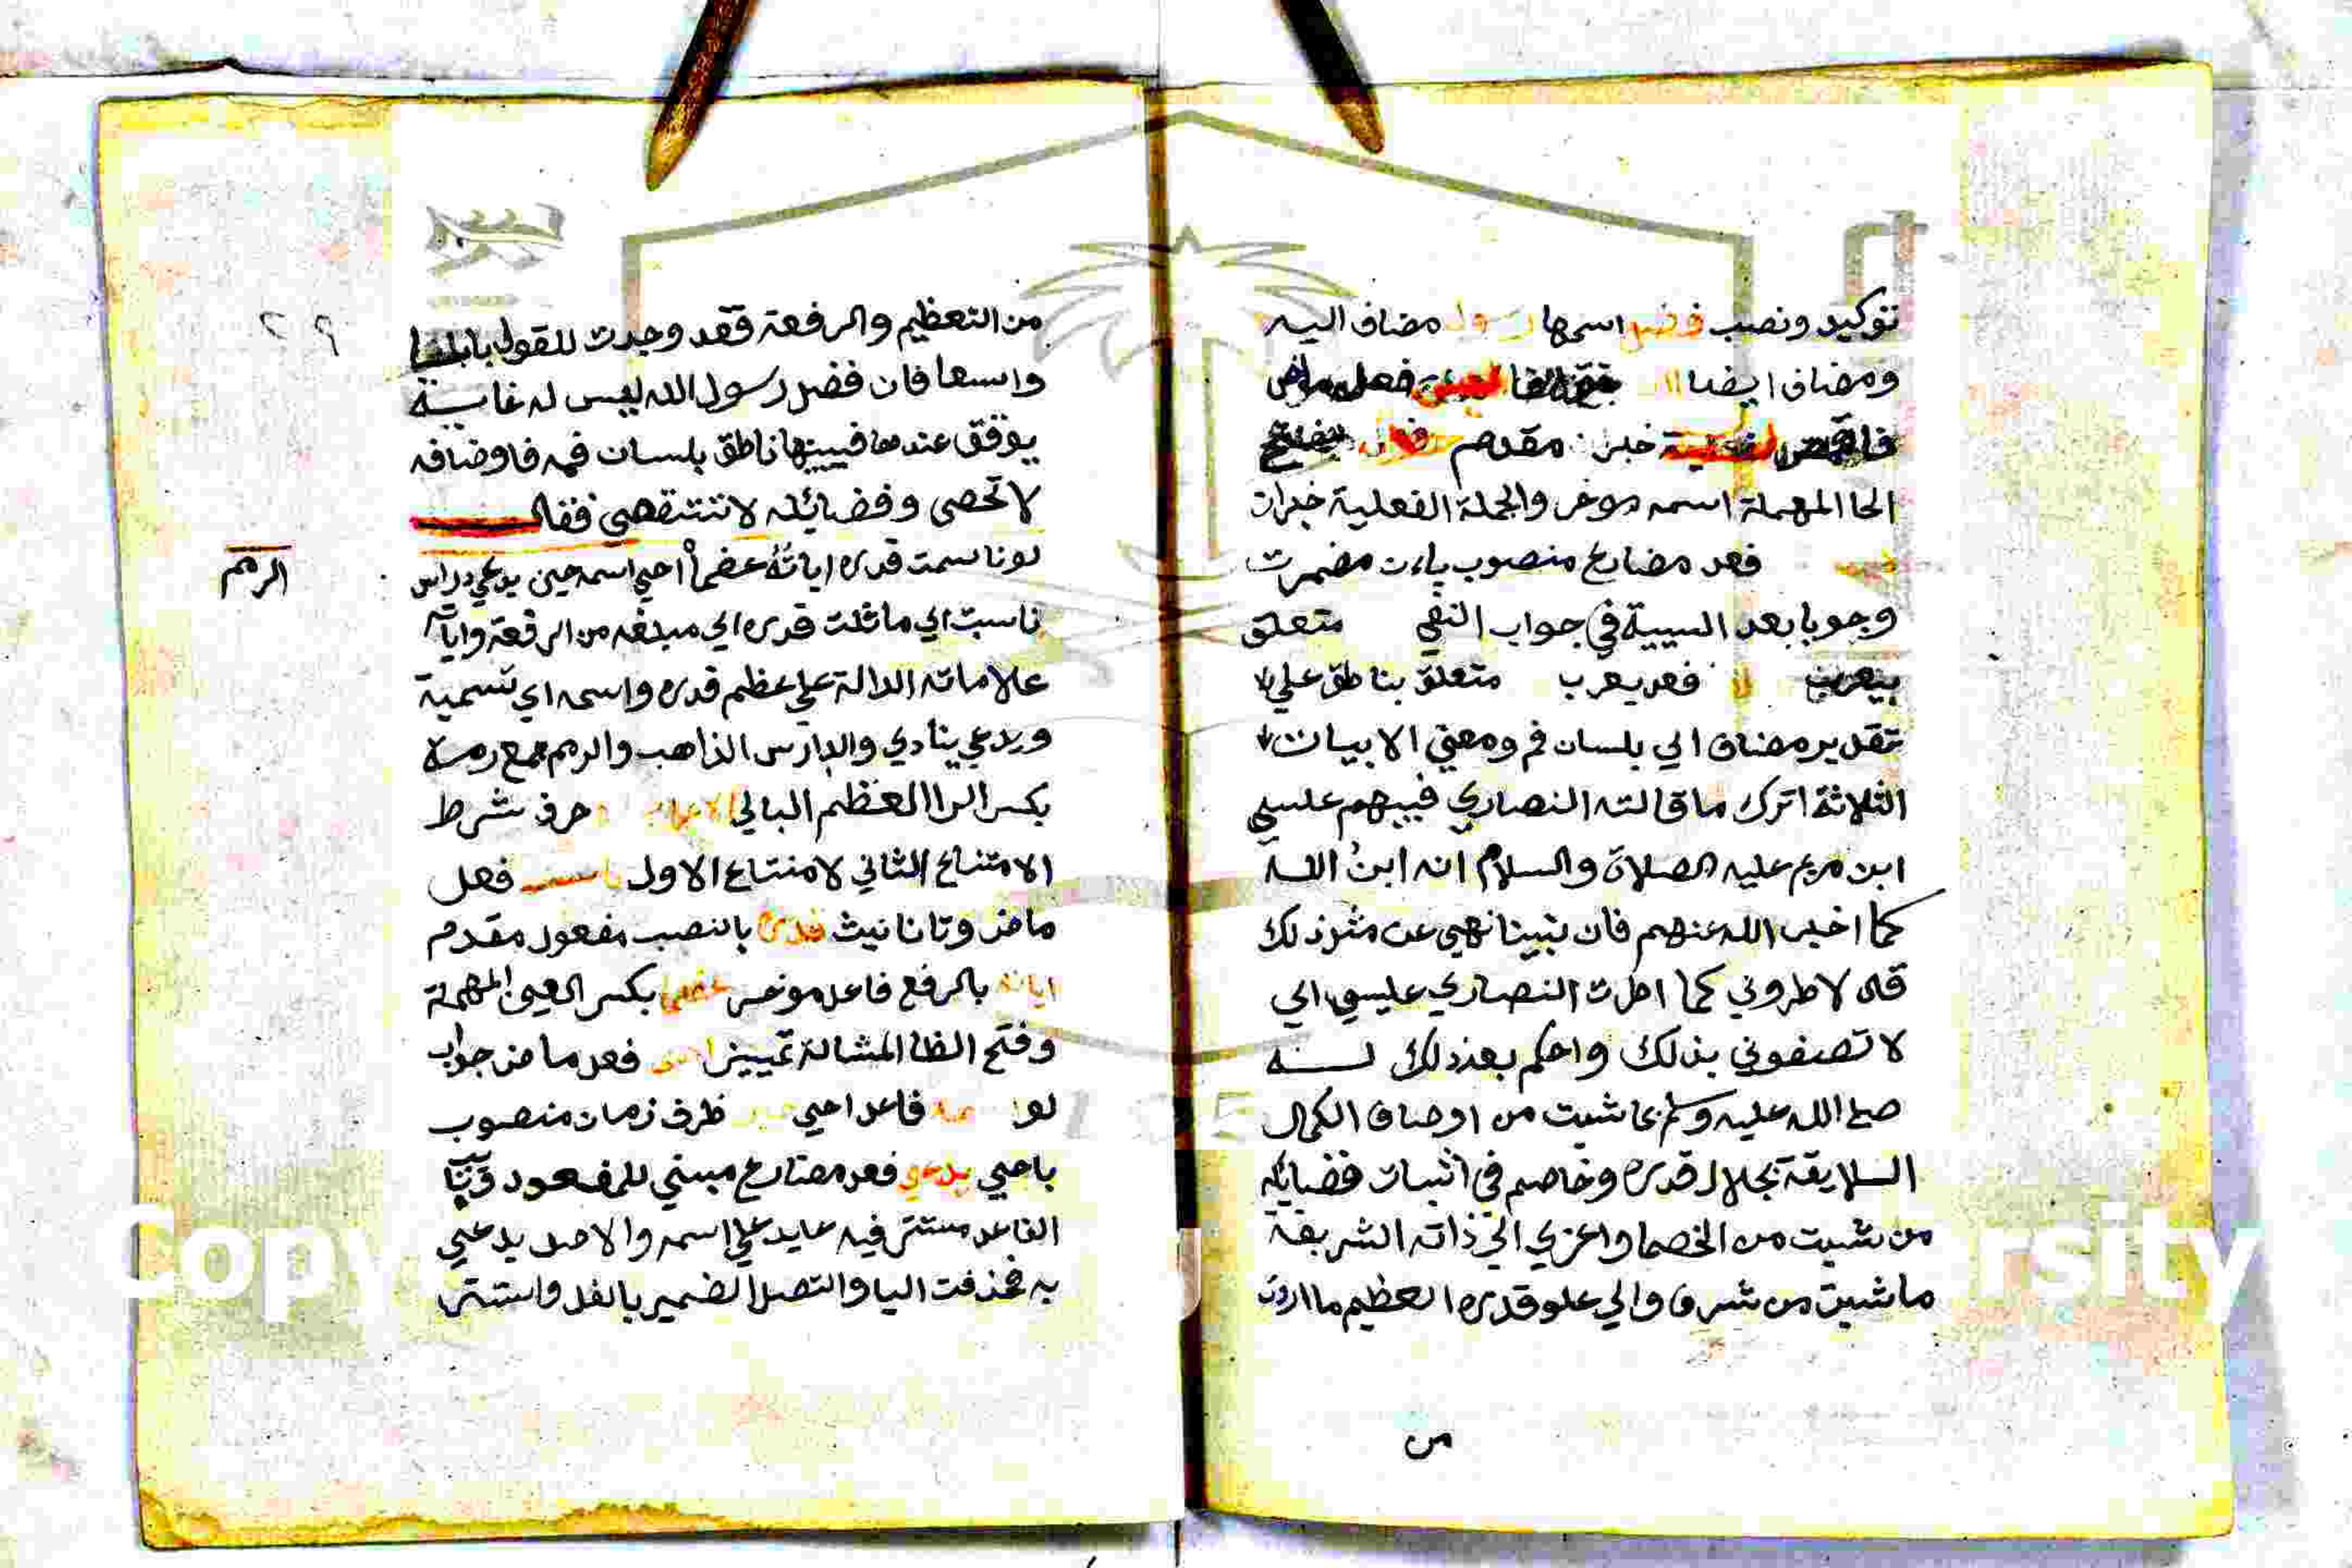 توكيد ونصب فضل اسمها رسول مضاف اليه
ومضاف ايضا فعل ماض
خبر مقدم
الحا المهملة اسمه موخر والجملة الفعلية خبران
فعل مضارع منصوب بان مضمرت
وجوبا بعد السببية في جواب النفي متعلق
بيعرب فعل يعرب متعلق بناطق علي
تقدير مضاف الي بلسان فم ومعني الابيات
الثلاثة اترك ما قالته النصاري فيبهم عيسي
ابن مريم عليه الصلاة والسلام انه ابن الله
كما اخبر الله عنهم فان نبينا نهي عن مثل ذلك
قال لا طروني كما اطرت النصاري عليسي اي
لا تصفوني بذلك واحكم بعد ذلك لـــه
صلي الله عليه وسلم بما شيت من اوصاف الكمال
السلايقة بجلال قدره وخاصم في اثبات فضايله
من شيت من الخصما واعزي الي ذاته الشريفة
ما شيت من شرف والي علو قدره العظيم ما اردت
من
٢٩
من التعظيم والرفعة فقد وجدت للقول بابا
واسعا فان فضل رسول الله ليس له غايـــة
يوقف عندها فيبينها ناطق بلسان فمه فاوصافه
لا تحصي وفضائله لا تستقصي فقال
لو ناسبت قدره اياته عضما احي اسمه حين يدعي دارس
الرمم
ناسبت اي ماثلت قدره اي مبلغه من الرفعة واياته
علاماته الدالة علي عظم قدره واسمه اي تسمية
ويدعي ينادي والدارس الذاهب والرمم جمع رمة
بكسر الرا العظم البالي الاعراب حرف شرط
الامتناع الثاني لامتناع الاول فعل
ماض وتا تانيث قدره بالنصب مفعول مقدم
اياته بالرفع فاعل موخر عظما بكسر العين المهملة
وفتح الظا المشالة تمييز فعل ماض جواب
لو فاعل احيي ظرف زمان منصوب
باحيي يدعي فعل مضارع مبني للمفعول ونايب
الفاعل مستتر فيه عايد علي اسمه والاصل يدعي
به فحذفت اليا واتصل الضمير بالفعل واستتر